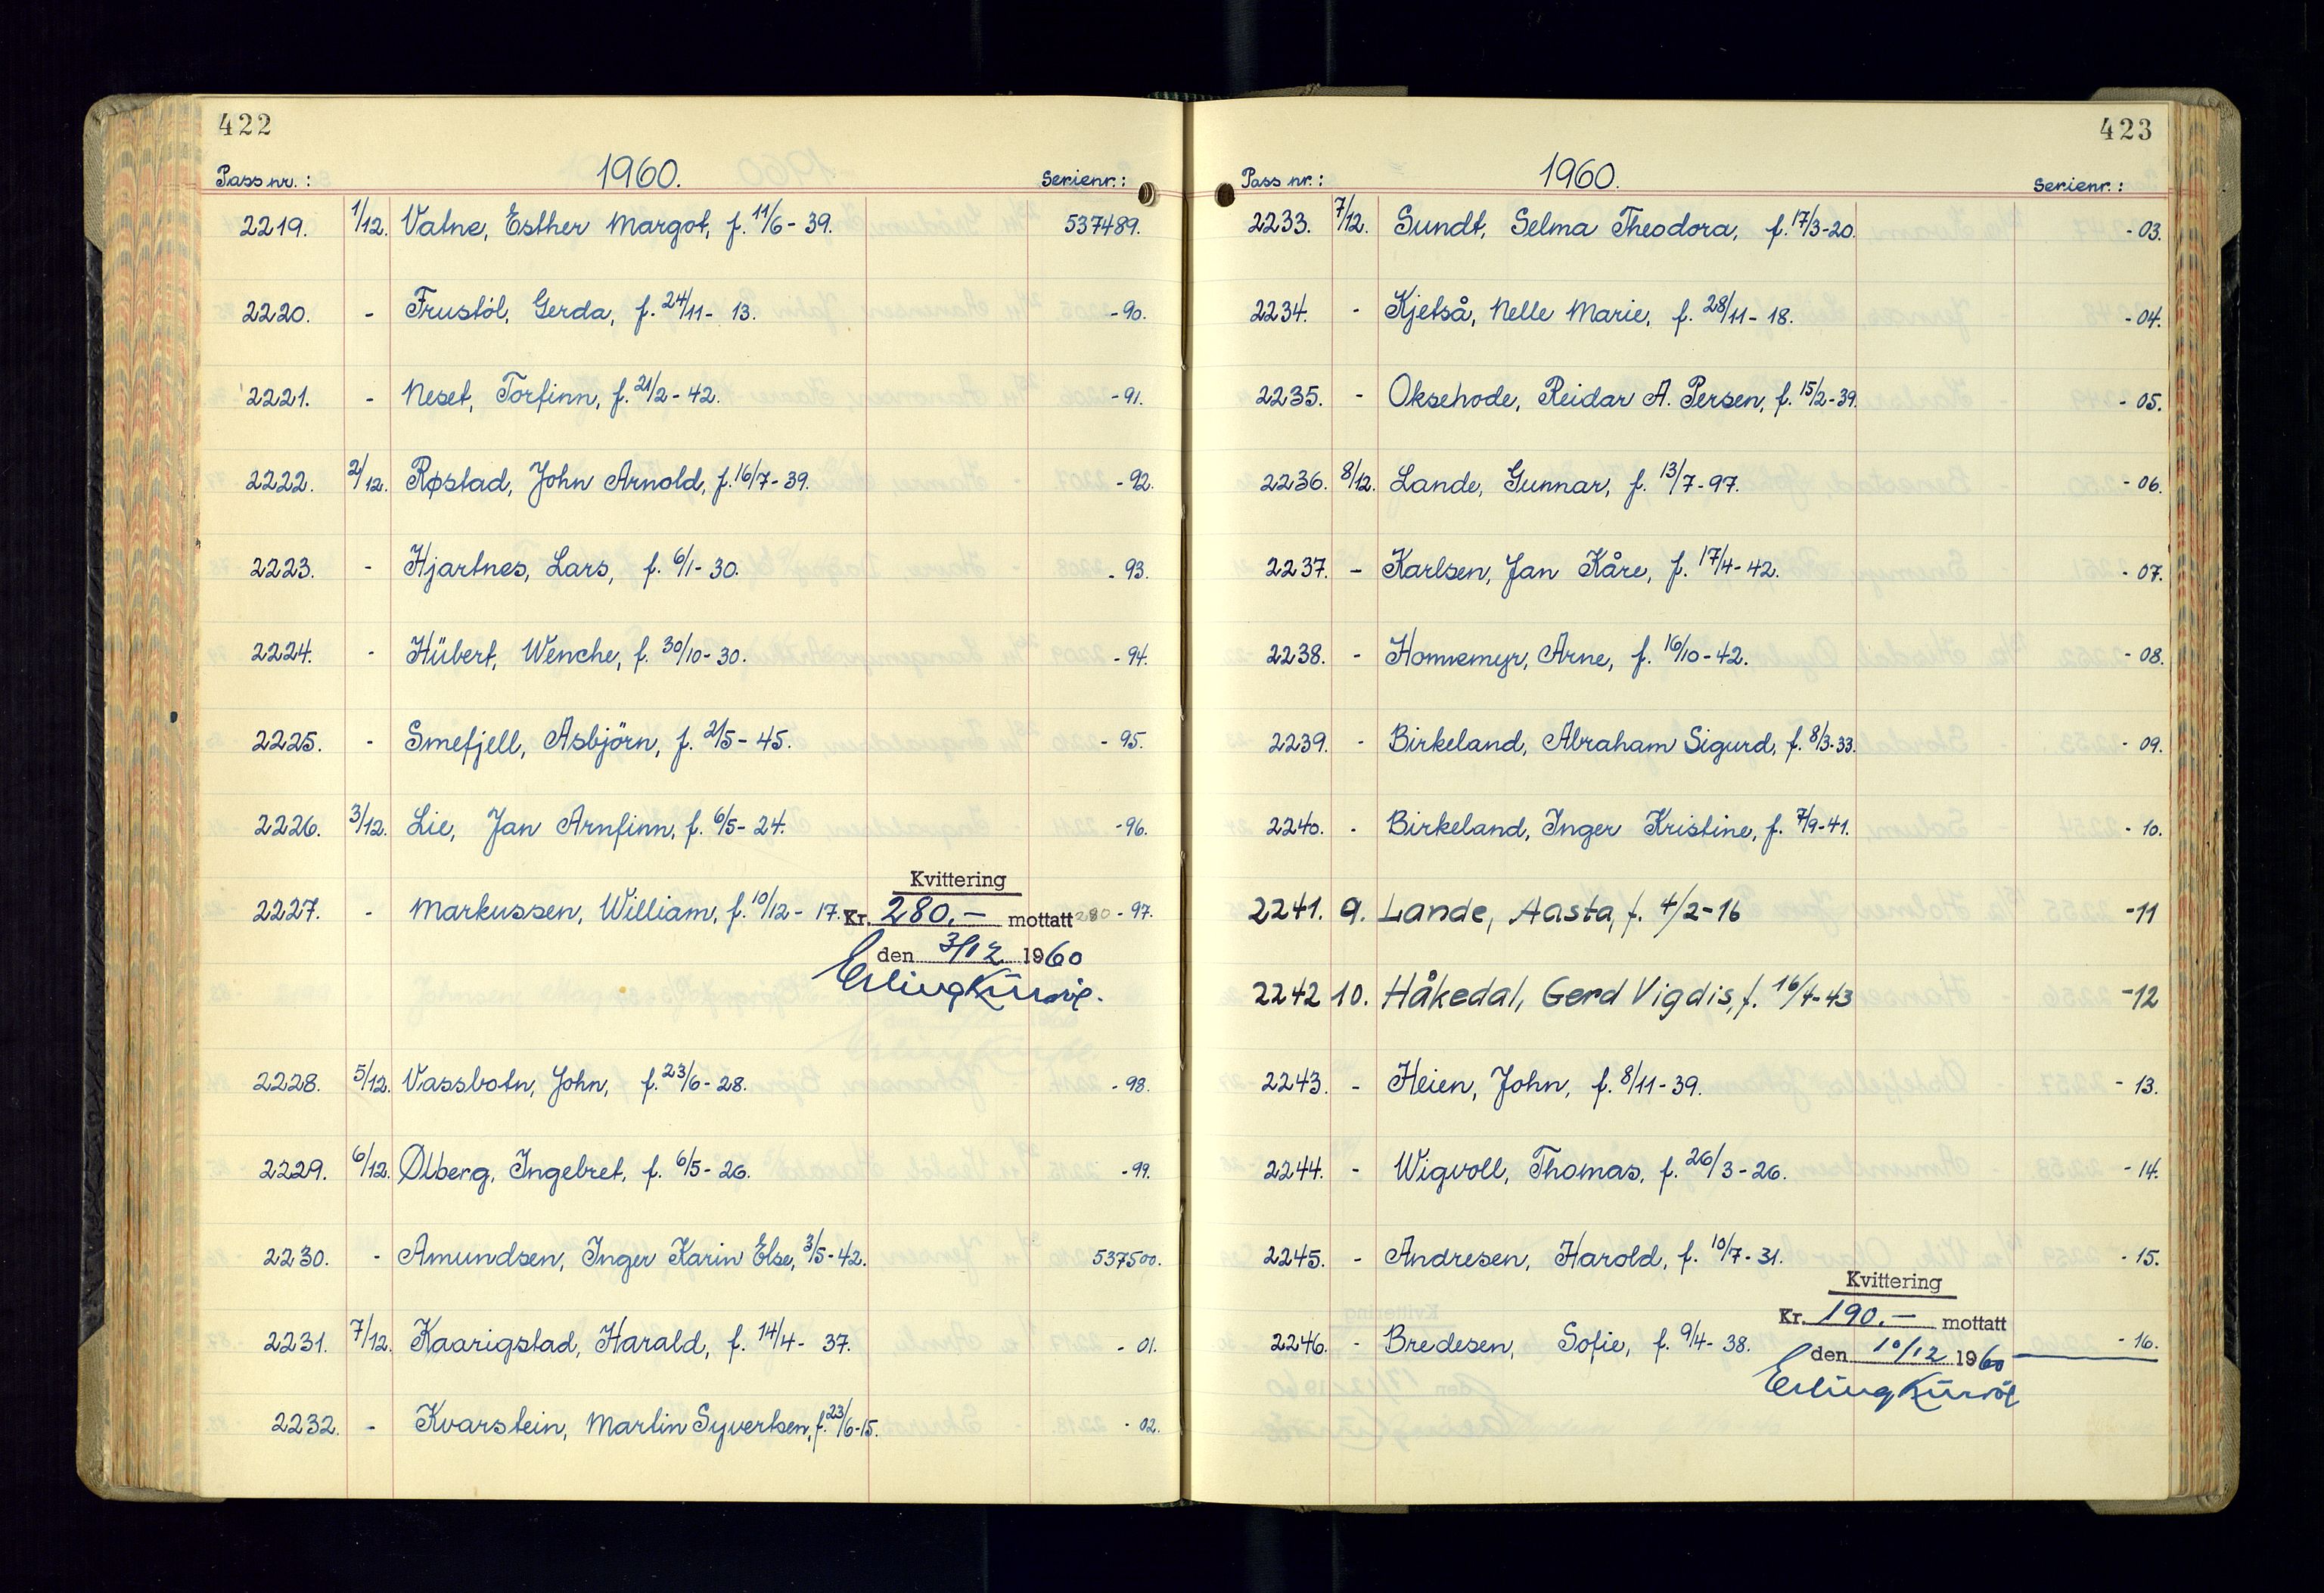 422
Pass nr.: 1960. Serienr.:
2219. 1/12. Vatne, Esther Margot, f. 11/6 - 39. 537489.
2220. - Frustøl, Gerda, f. 24/11 - 13. - 90.
2221. - Neset, Torfinn, f. 21/2 - 42. - 91.
2222. 2/12. Røstad, John Arnold, f. 16/7 - 39. - 92.
2223. - Hjartnes, Lars, f. 6/1 - 30. - 93.
2224. - Hübert, Wenche, f. 30/10 - 30. - 94.
2225. - Smefjell, Asbjörn, f. 2/5 - 45. - 95.
2226. 3/12. Lie, Jan Arnfinn, f. 6/5 - 24. - 96.
2227. - Markussen, William, f. 10/12 - 17. 280 - 97.
Kvittering
Kr. 280.- mottatt
den 3/12 1960
2228. 5/12. Vassbotn, John, f. 23/6 - 28. - 98.
2229. 6/12. Ølberg, Ingebret, f. 6/5 - 26. - 99.
2230. - Amundsen, Inger Karin Else, 3/5 - 42. 537500.
2231. 7/12. Kaarigstad, Harald, f. 14/4 - 37. - 01.
2232. - Kvarstein, Martin Syvertsen, f. 23/6 - 15. - 02.
423
Pass nr.: 1960. Serienr.:
2233. 7/12. Sundt, Selma Theodora, f. 17/3 - 20. - 03.
2234. - Kjetså, Nelle Marie, f. 28/11 - 18. - 04.
2235. - Oksehode, Reidar A. Persen, f. 15/2 - 39. - 05.
2236. 8/12. Lande, Gunnar, f. 13/7 - 97. - 06.
2237. - Karlsen, Jan Kåre, f. 17/4 - 42. - 07.
2238. - Homnemyr, Arne, f. 16/10 - 42. - 08.
2239. - Birkeland, Abraham Sigurd, f. 8/3 - 33. - 09.
2240. - Birkeland, Inger Kristine, f. 7/9 - 41. - 10.
2241. 9. Lande, Aasta, f. 4/2 - 16 - 11
2242 10. Håkedal, Gerd Vigdis, f. 16/4 - 43 - 12
2243. - Heien, John, f. 8/11 - 39. - 13.
2244. - Wigvoll, Thomas, f. 26/3 - 26. - 14.
2245. - Andresen, Harold, f. 10/7 - 31. - 15.
2246. - Bredesen, Sofie, f. 9/4 - 38. - 16.
Kvittering
Kr. 190.- mottatt
den 10/12 1960